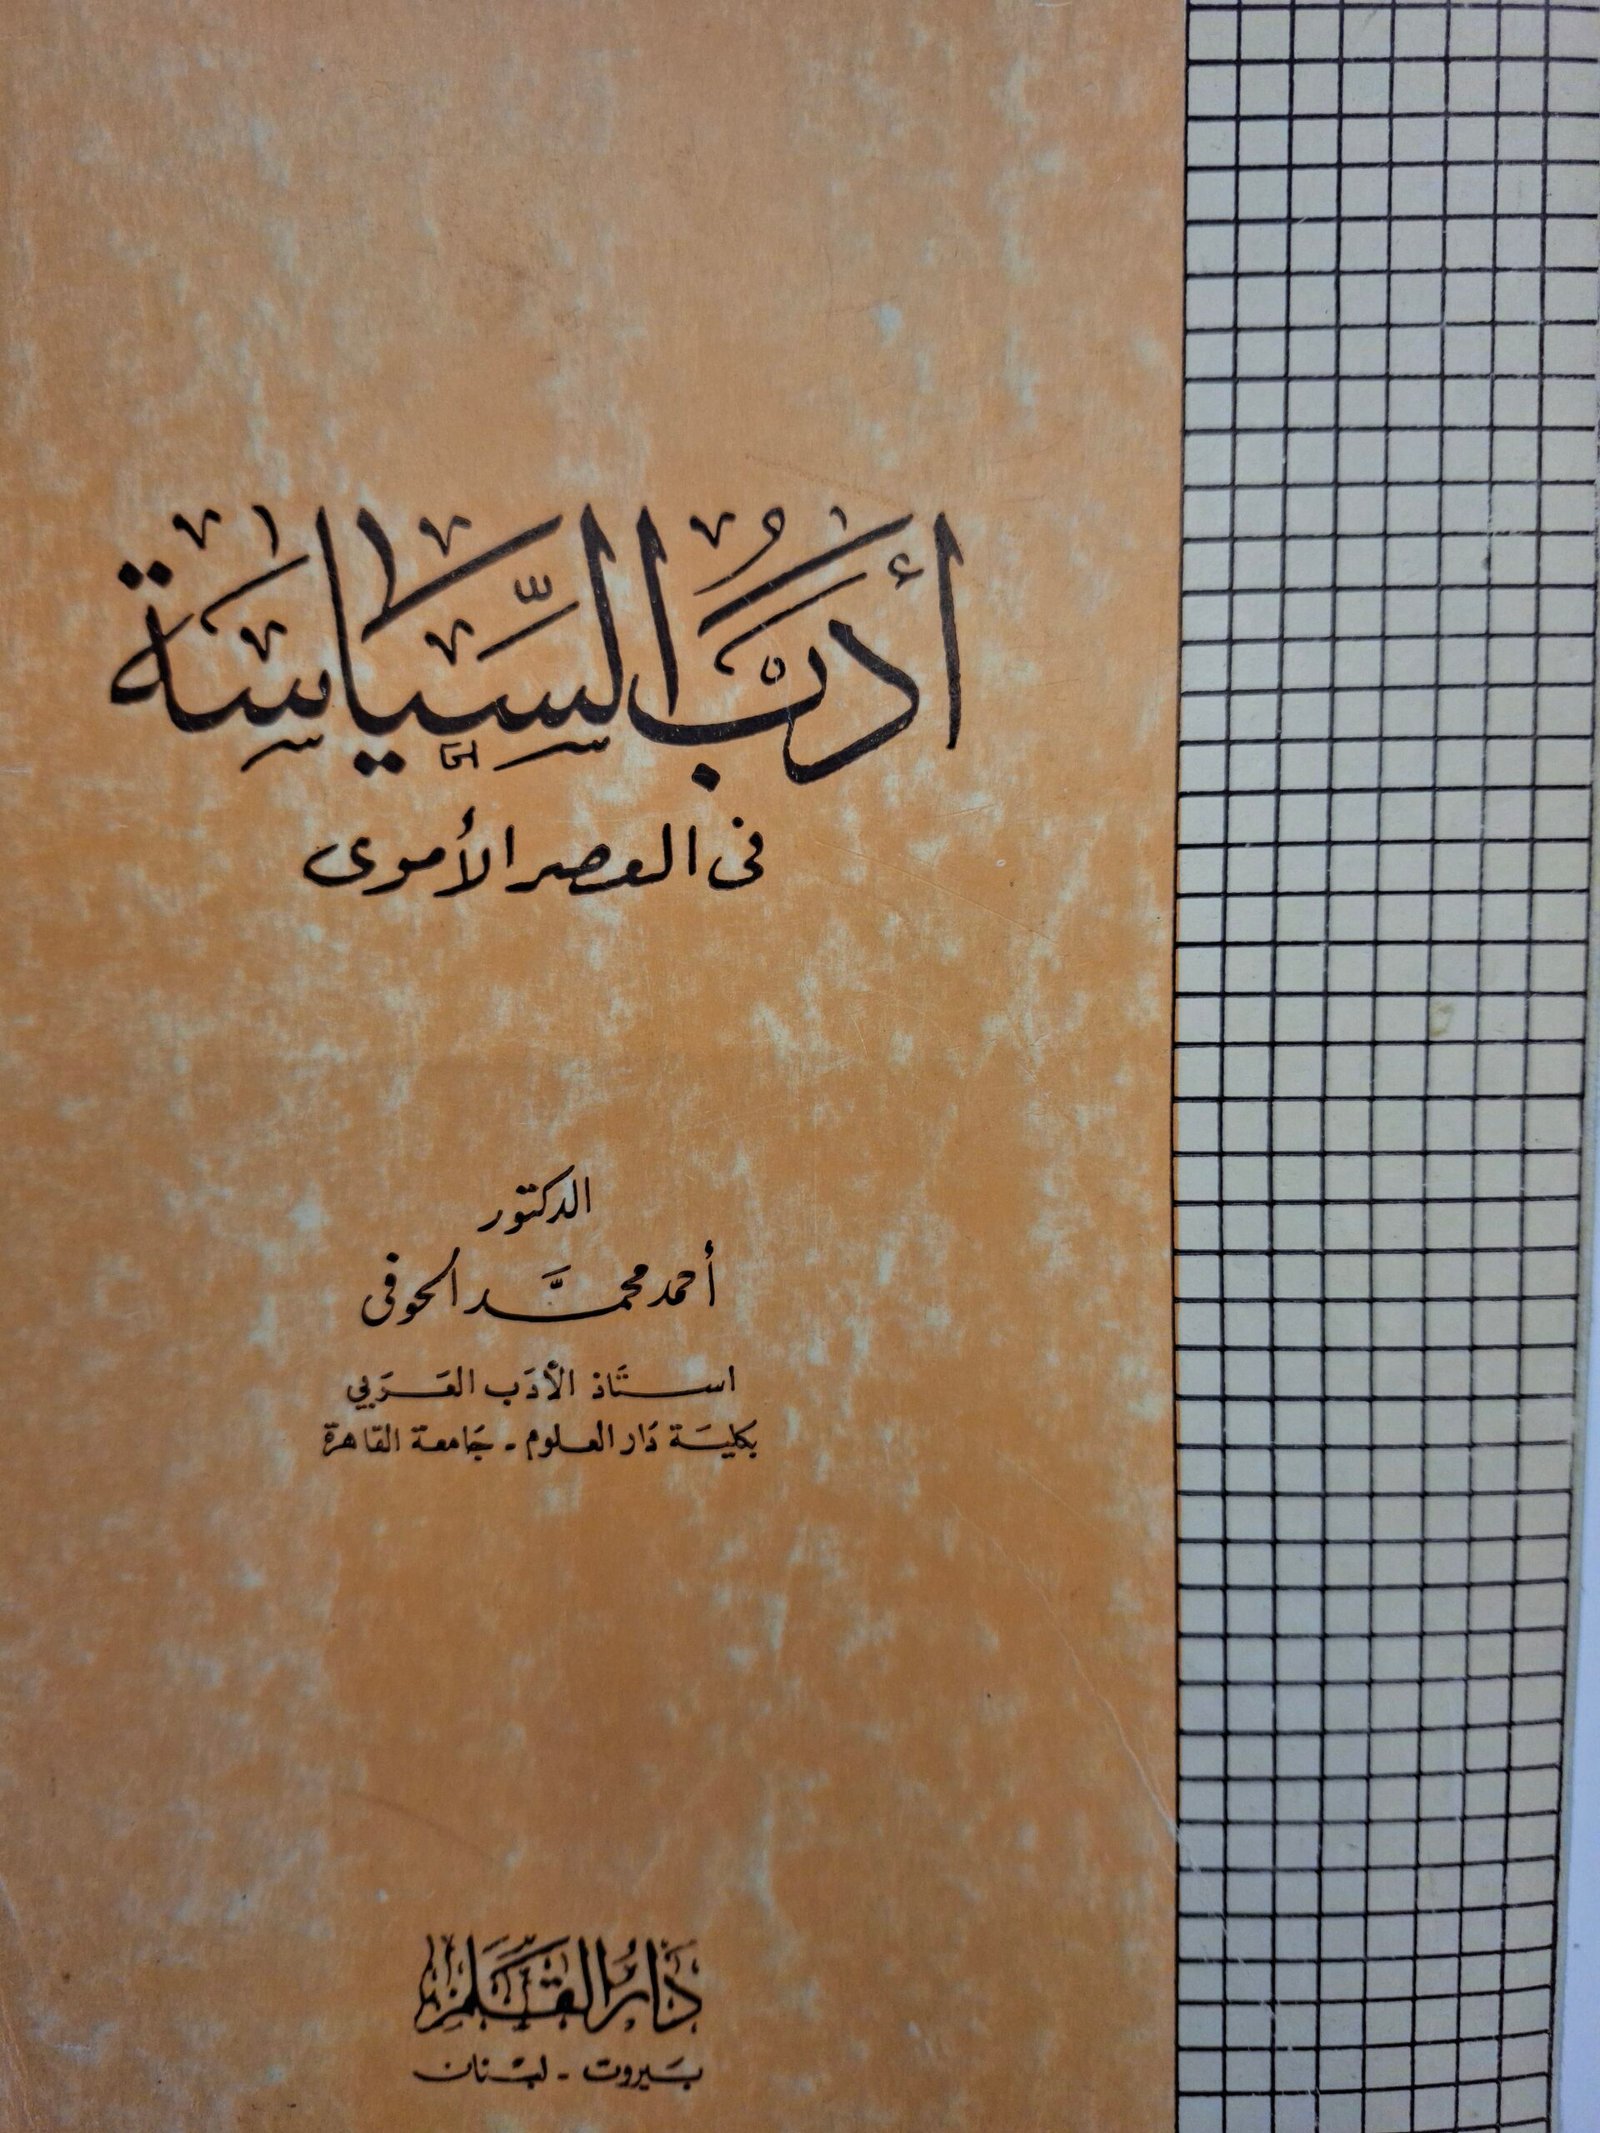 أدب السياسة
فى العصر الأموى
الدكتور
أحمد محمد الحوفى
استاذ الأدب العربي
بكلية دار العلوم - جامعة القاهرة
دار القلم
بيروت - لبنان